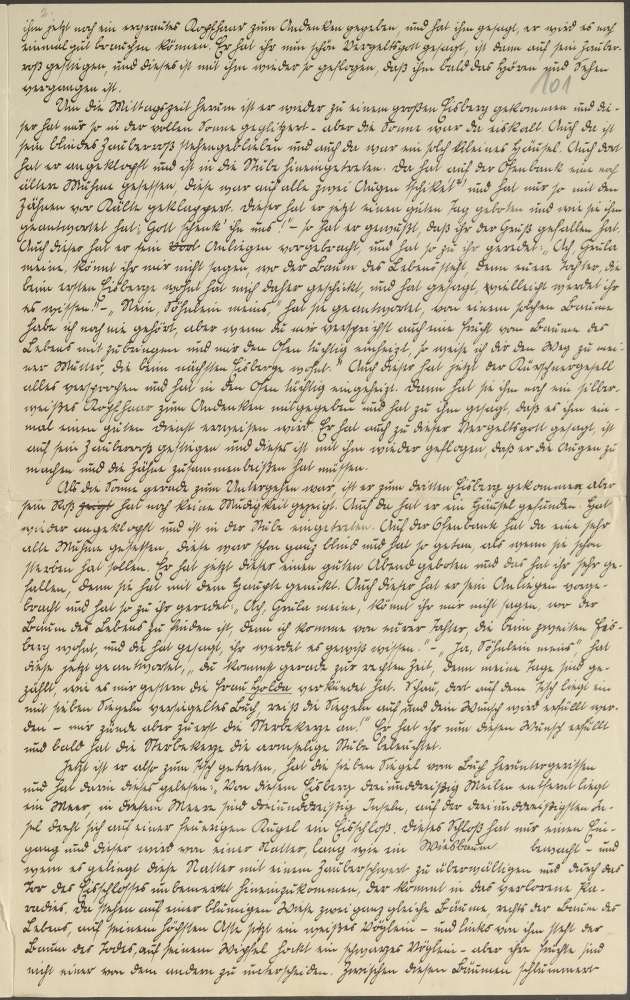 2.
ihm jetzt noch ein ergrautes Roßhaar zum Andenken gegeben, und hat ihm gesagt, er wird es noch
einmal gut brauchen können. Er hat ihr nun schön Vergeltsgott gesagt, ist dann auf sein Zauber-
roß gestiegen, und dieses ist mit ihm wieder so geflogen, daß ihm bald das Hören und Sehen
vergangen ist.
101
Um die Mittagszeit herum ist er wieder zu einem großen Eisberg gekommen und die-
ser hat nur so in der vollen Sonne geglitzert - aber die Sonne war da eiskalt. Auch da ist
sein blindes Zauberroß stehengeblieben und auch da war ein solch kleines Häusel. Auch dort
hat er angeklopft und ist in die Stube hineingetreten. Da hat auf der Ofenbank eine noch
ältere Muhme gesessen, diese war auf alle zwei Augen und hat nur so mit den
Zähnen vor Kälte geklappert. Dieser hat er jetzt einen guten Tag geboten und wie sie ihm
geantwortet hat: „Gott schenk ihn uns!" - so hat er gewußt, daß ihr der Gruß gefallen hat.
Auch dieser hat er sein Anliegen vorgebracht, und hat so zu ihr geredet: „Ach, Gevla
meine, könnt ihr mir nicht sagen, wo der Baum des Lebens steht, denn eure Tochter, die
beim ersten Eisberge wohnt hat mich daher geschickt, und hat gesagt, vielleicht werdet ihr
es wissen." -, „Nein, Söhnlein meins," hat sie geantwortet, von einem solchen Baume
habe ich noch nie gehört, aber wenn du mir versprichst auch eine Frucht vom Baume des
Lebens mitzubringen und mir den Ofen tüchtig einheizt, so weise ich dir den Weg zu mei-
ner Mutter, die beim nächsten Eisberge wohnt." Auch dieser hat jetzt der Kürschnergesell
alles versprochen und hat in den Ofen tüchtig eingeheizt. Dann hat sie ihm noch ein silber-
weißes Roßhaar zum Andenken mitgegeben und hat zu ihm gesagt, daß es ihm ein-
mal einen guten Dienst erweisen wird. Er hat auch zu dieser Vergeltsgott gesagt, ist
auf sein Zauberroß gestiegen und dieses ist mit ihm wieder geflogen, daß er die Augen zu
machen und die Zähne zusammenbeißen hat müssen.
Als die Sonne gerade zum Untergehen war, ist er zum dritten Eisberg gekommen, aber
sein Roß hat noch keine Müdigkeit gezeigt. Auch da hat er ein Häusel gefunden. Hat
wieder angeklopft und ist in der Stube eingetreten. Auf der Ofenbank hat da eine sehr
alte Muhme gesessen, diese war schon ganz blind und hat so getan, als wenn sie schon
sterben hat sollen. Er hat jetzt dieser einen guten Abend geboten und das hat ihr sehr ge-
fallen, denn sie hat mit dem Haupte genickt. Auch dieser hat er sein Anliegen vorge-
bracht und hat so zu ihr geredet: „Ach, Gevla meine, könnt ihr mir nicht sagen, wo der
Baum des Lebens zu finden ist, denn ich komme von eurer Tochter, die beim zweiten Eis-
berg wohnt, und die hat gesagt, ihr werdet es gewiß wissen." - „Ja, Söhnlein meins" hat
diese jetzt geantwortet, „du kommst gerade zur rechten Zeit, denn meine Tage sind ge-
zählt, wie es mir gestern die Frau Holda verkündet hat. Schau, dort auf dem Tisch liegt ein
mit sieben Siegeln versiegeltes Buch, reiß die Siegeln auf und dein Wunsch wird erfüllt wer-
den - mir zünde aber zuerst die Sterbekerze an!" Er hat ihr nun diesen Wunsch erfüllt
und bald hat die Sterbekerze die armselige Stube beleuchtet.
Jetzt ist er also zum Tisch getreten, hat die sieben Siegel vom Buch heruntergerissen
und hat darin dieses gelesen: „Von diesem Eisberg dreiunddreißig Meilen entfernt liegt
ein Meer, in diesem Meere sind dreiunddreißig Inseln, auf der dreiunddreißigsten In-
sel dreht sich auf einer feuerigen Kugel ein Eisschloß. Dieses Schloß hat nur einen Ein-
gang und dieser wird von einer Natter, lang wie ein Wiesbaum bewacht - und
wem es gelingt diese Natter mit einem Zauberschwert zu überwältigen und durch das
Tor des Eisschlosses unbemerkt hineinzukommen, der kommt in das verlorene Pa-
radies. Da stehen auf einer blumigen Wiese zwei ganz gleiche Bäume, rechts der Baum des
Lebens, auf seinem höchsten Aste sitzt ein weißes Vöglein - und links von ihm steht der
Baum des Todes, auf seinem Wipfel hockt ein schwarzes Vöglein - aber ihre Früchte sind
nicht einer von dem andern zu unterscheiden. Zwischen diesen Bäumen schlummert